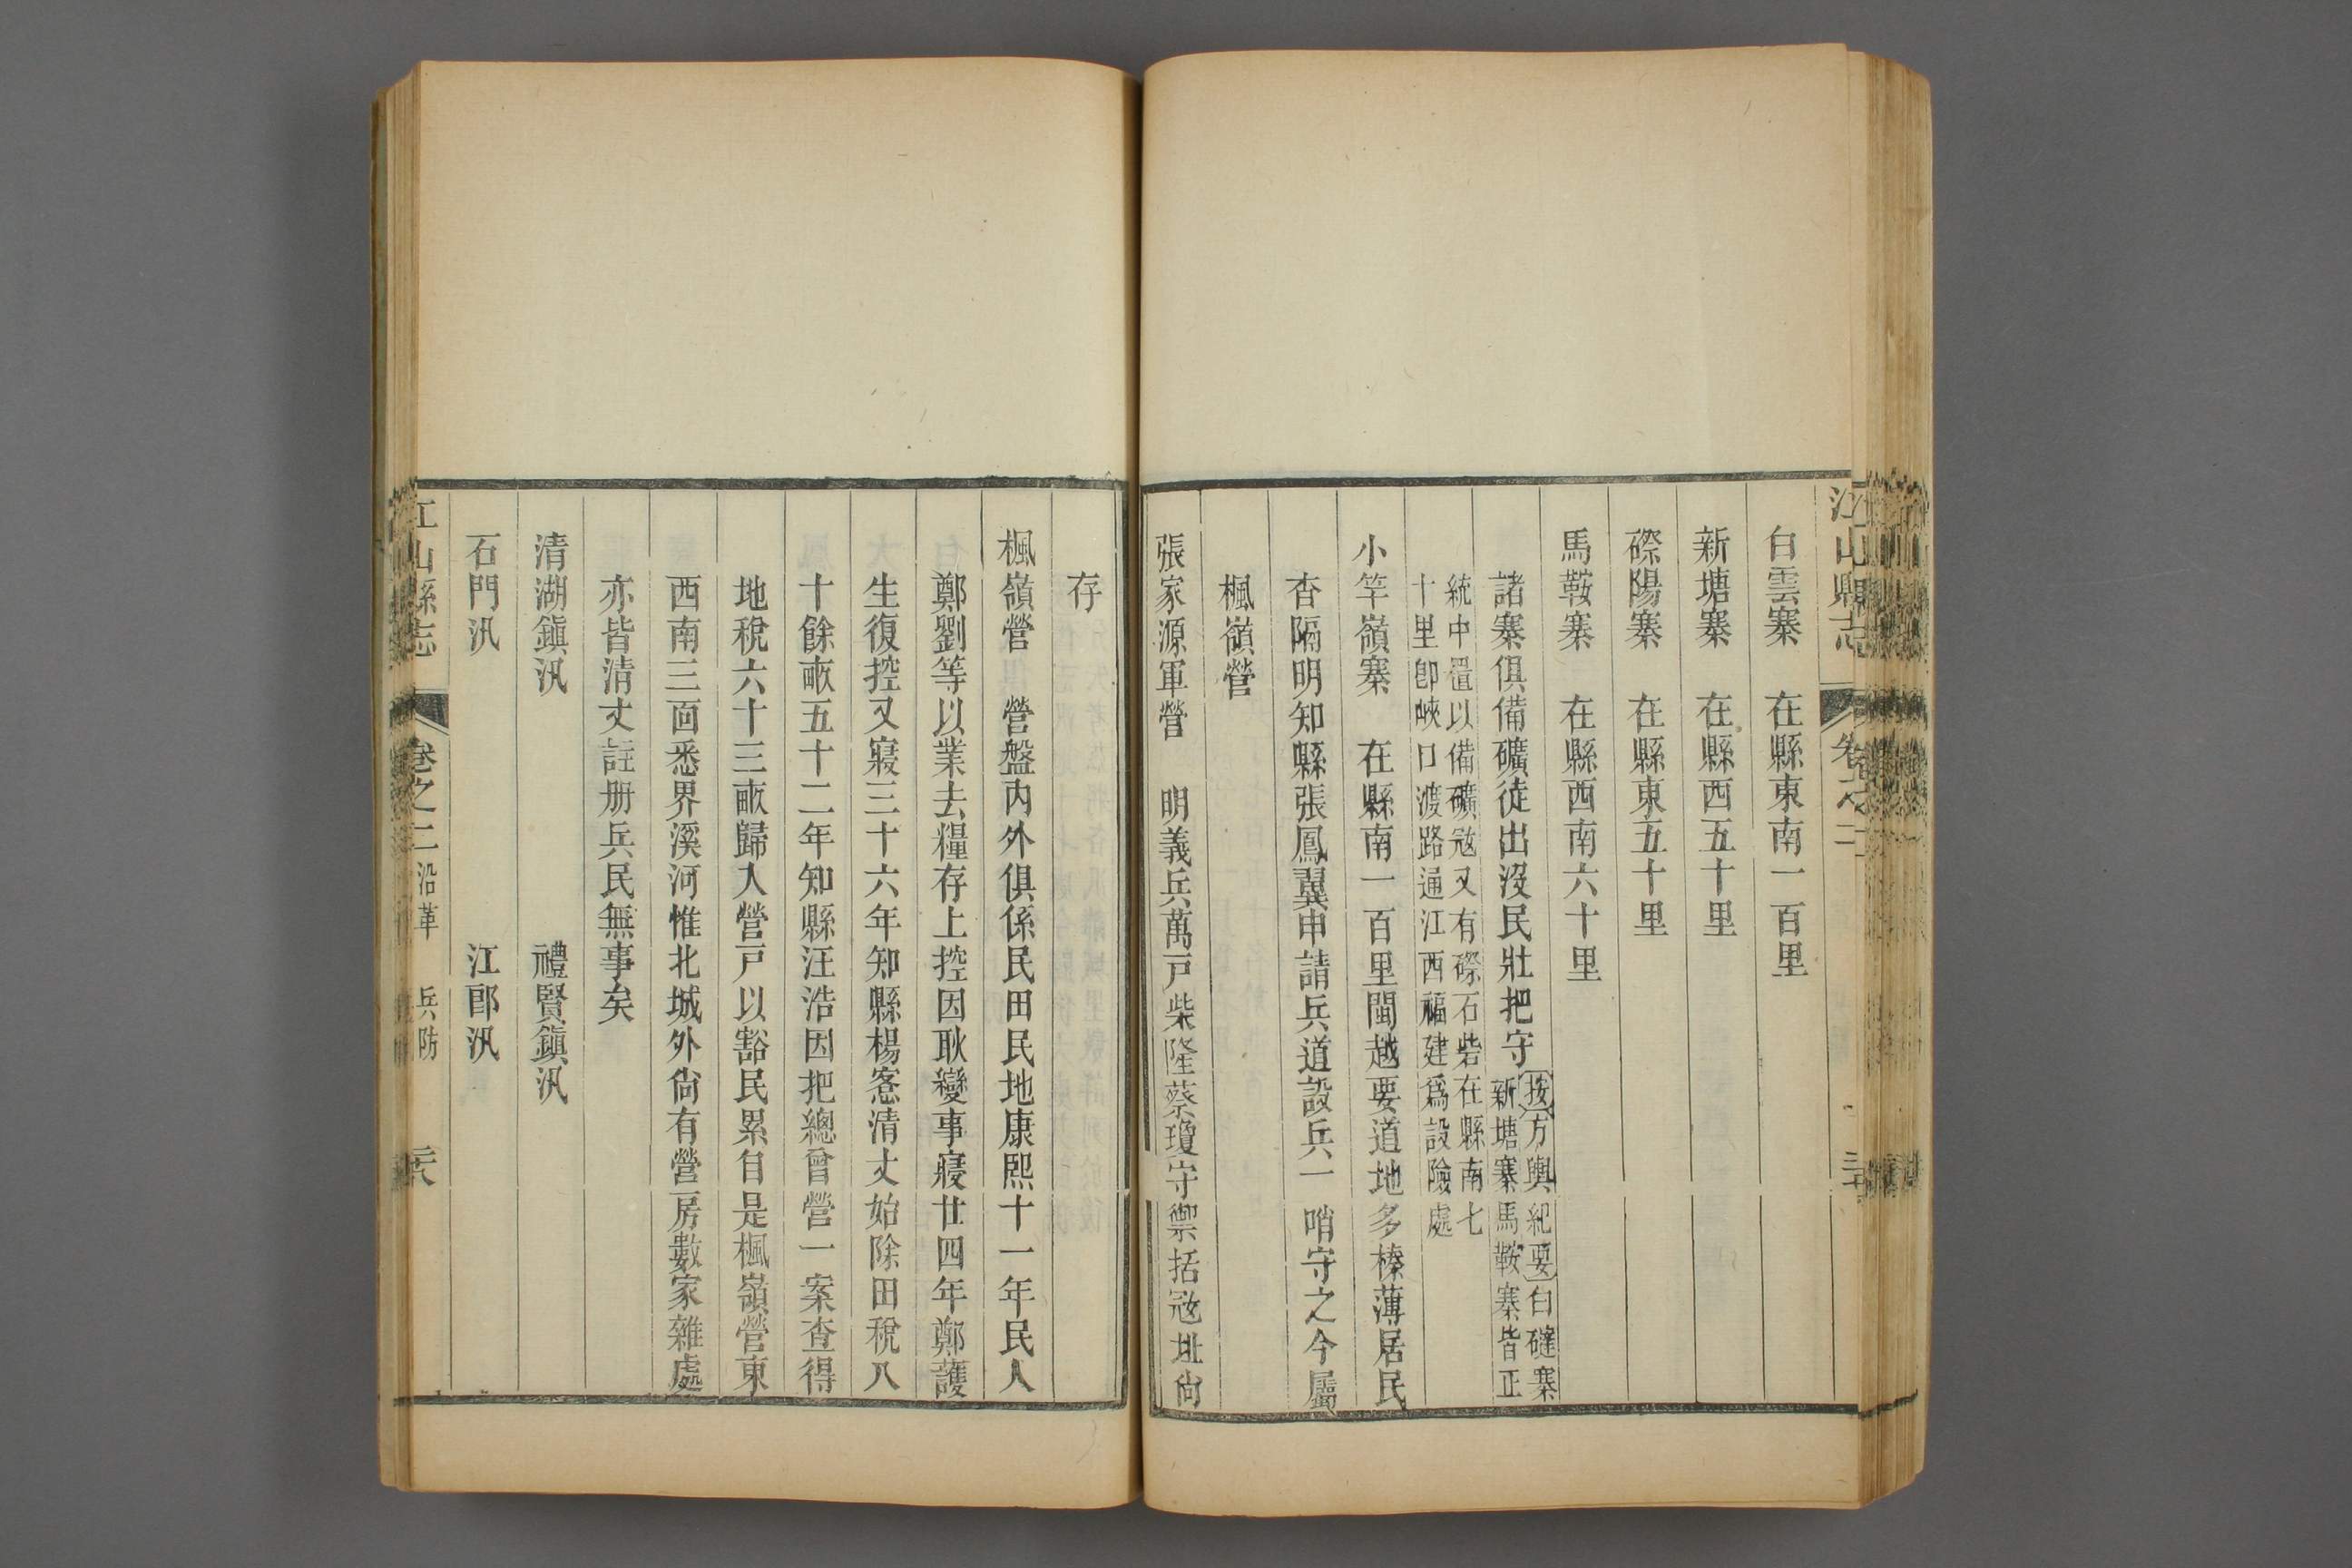 江山縣志
卷之二
白雲寨　在縣東南一百里
新塘寨　在縣西五十里
磜陽寨　在縣東五十里
馬鞍寨　在縣西南六十里
諸寨俱備礦徒出沒民壯把守
按方輿紀要白磀寨
新塘寨馬鞍寨皆正
統中置以備礦寇又有磜石砦在縣南七
十里卽峽口渡路通江西福建爲設險處
小竿嶺寨　在縣南一百里閩越要道地多榛薄居民
杳隔明知縣張鳳翼申請兵道設兵一哨守之今屬
楓嶺營
張家源軍營　明義兵萬戸柴隆蔡瓊守禦括寇址尙
存
楓嶺營　營盤内外俱係民田民地康熙十一年民人
鄭劉等以業去糧存上控因耿變事寢廿四年鄭護
生復控又寢三十六年知縣楊愙清丈始除田稅八
十餘畝五十二年知縣汪浩因把總曾營一案查得
地稅六十三畝歸入營戸以豁民累自是楓嶺營東
西南三面悉界溪河惟北城外尙有營房數家雜處
亦皆清丈註册兵民無事矣
清湖鎭汛　禮賢鎭汛
石門汛　江郎汛
江山縣志
卷之二 沿革　兵防